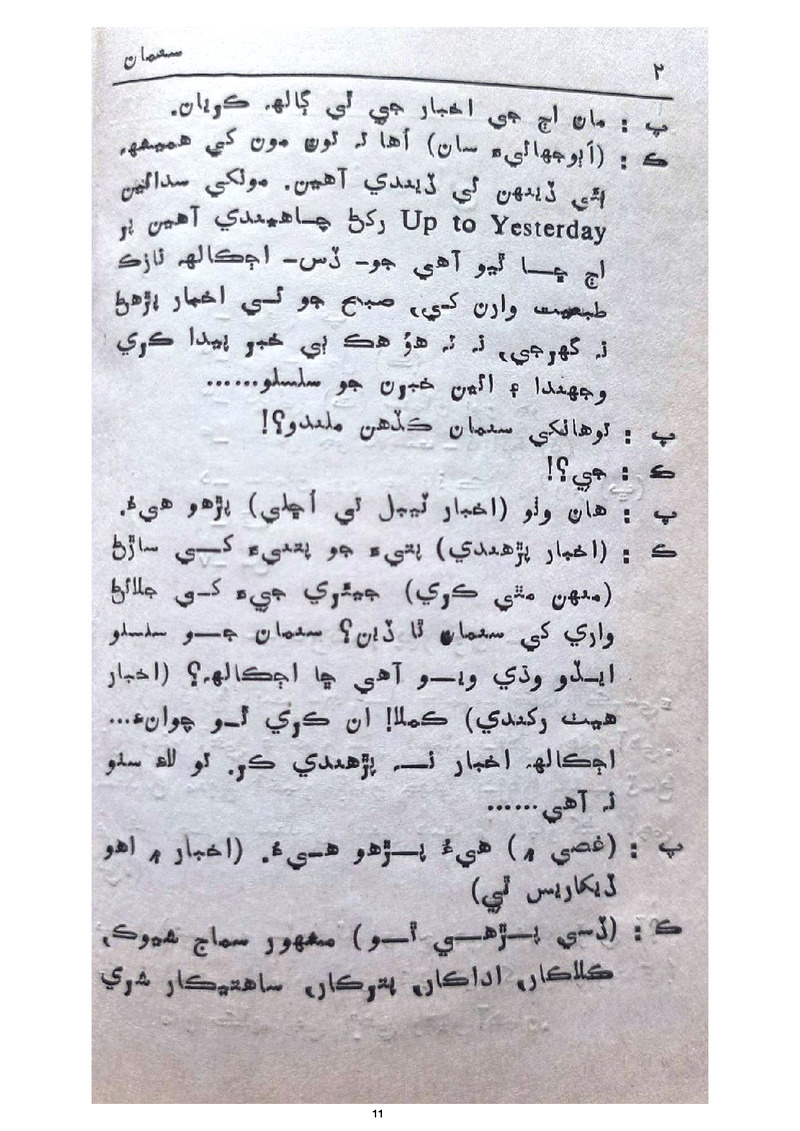 ۲ سنمان
پ : مان اڄ جي اخبار جي ٿي ڳالھہ ڪريان.
ڪ : (اٻوجھائيءَ سان) اُها تہ تون مون کي هميشہ
ٻئي ڏينهن ئي ڏيندي آهين. مونکي سدائين
Up to Yesterday رکڻ چاهيندي آهين پر
اڄ ڇا ٿيو آهي جو- ڏس- اڄڪالھہ نازڪ
طبيعت وارن کي، صبح جو ئي اخبار پڙهڻ
نہ گهرجي، نہ تہ هوُ هڪ ٻي خبر پيدا ڪري
وجهندا ۽ ائين خبرن جو سلسلو......
پ : توهانکي سنمان ڪڏهن ملندو؟!
ڪ : جي؟!
پ : هان وٺو (اخبار ٽيبل تي اُڇلي) پڙهو هيءُ.
ڪ : (اخبار پڙهندي) پتيءَ جو پتنيءَ کي ساڙڻ
(منهن مٿي ڪري) جيئري جيءَ کي جلائڻ
واري کي سنمان ٿا ڏين؟ سنمان جو سلسلو
ايڏو وڌي ويو آهي ڇا اڄڪالھہ؟ (اخبار
هيٺ رکندي) ڪملا! ان ڪري ٿو چوانءِ...
اڄڪالھہ اخبار نہ پڙهندي ڪر. تو لاءِ سٺو
نہ آهي......
پ : (غصي ۾) هيءُ پڙهو هيءُ. (اخبار ۾ اهو
ڏيکاريس ٿي)
ڪ : (ڏسي پڙهي ٿو) مشهور سماج شيوڪ،
ڪلاڪار، اداڪار، پترڪار، ساهتيڪار شري
11